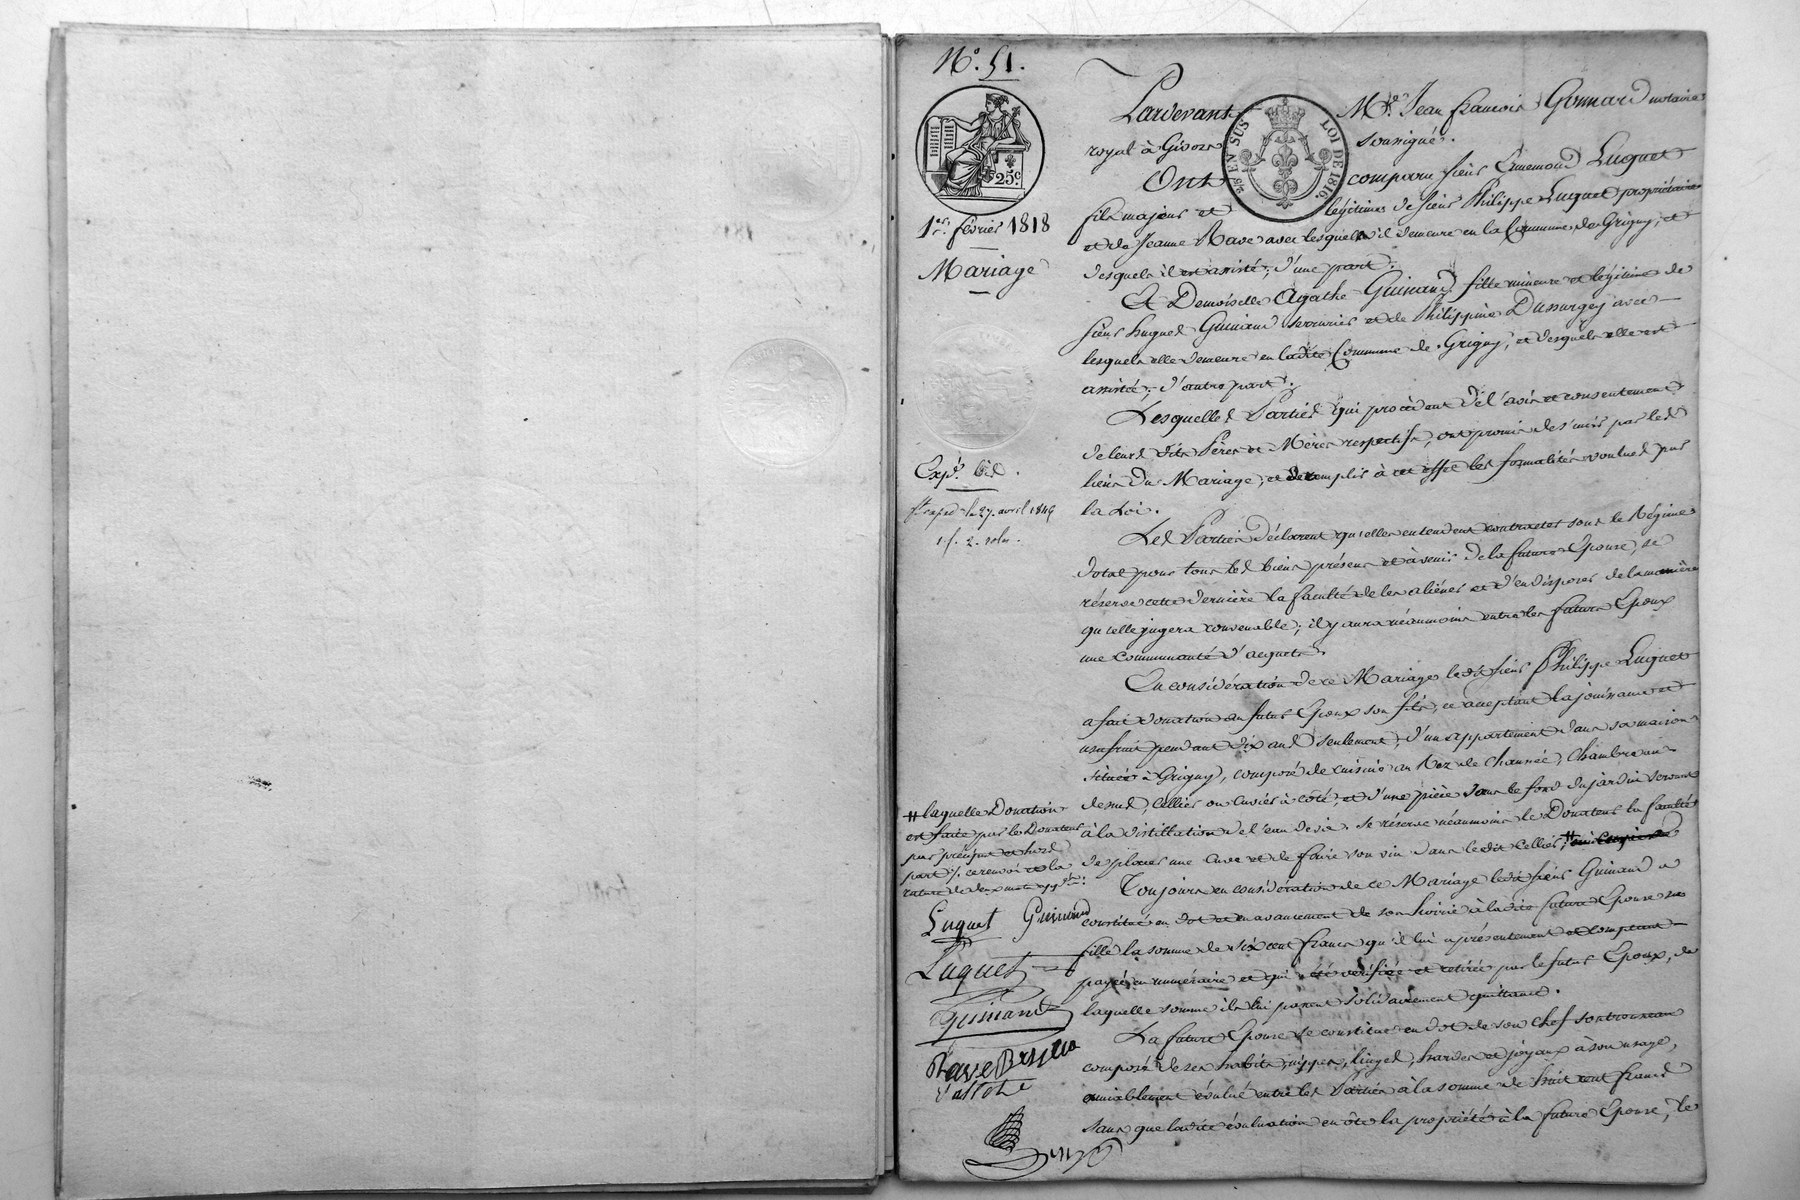 N.° 51.
25.c
1.er février 1818
Mariage
Exp.é
le 27. avril 1849
1. f. 2. rolles.
EN SUS
LOI DE 1816.
Pardevant M.e Jean François Gonnard notaire
royal à Givors soussigné.
Ont comparu sieur Ennemond Luquet
fils majeur et légitime de sieur Philippe Luquet propriétaire
et de Jeanne Rave avec lesquels il demeure en la Commune de Grigny, et
desquels il est assisté; d'une part.
Et Demoiselle Agathe Guinand fille mineure et légitime de
sieur huguet Guinand serrurier et de Philippine Dussurgey avec
lesquels elle demeure en ladite Commune de Grigny, et desquels elle est
assistée; d'autre part.
Lesquelles Parties qui procèdent de l'avis et consentement
de leurs dits Pères et Mères respectifs, ont promis de s'unir par les
liens du Mariage, et de remplir à cet effet les formalités voulues par
la Loi.
Les Parties déclarent qu'elles entendent contracter sous le Régime
dotal pour tous les biens présens et à venir de la future Epouse, se
réserve cette dernière la faculté de les aliéner et d'en disposer de la manière
qu'elle jugera convenable; il y aura néanmoins entre les futurs Epoux
une communauté d'acquets.
En considération de ce Mariage ledit sieur Philippe Luquet
a fait donation au futur Epoux son fils, ce acceptant la jouissance et
usufruit pendant dix ans seulement, d'un appartement dans sa maison
située à Grigny, composé de cuisine au Rez de Chaussée, Chambre au
dessus, Cellier ou Cuvier à côté, et d'une pièce dans le fond du jardin servant
à la distillation de l'eau de vie. Se réserve néanmoins le Donateur la faculté
de placer une Cuve et de faire son vin dans ledit Cellier; #
Toujours en considération de ce Mariage ledit sieur Guinand a
constitué en dot et en avancement de son hoirie à ladite future Epouse sa
fille la somme de six cent francs qu'il lui a présentement et comptant
payée en numéraire et qui a été vérifiée et retirée par le futur Epoux, de
laquelle somme ils lui passent solidairement quittance.
La future Epouse se constitue en dot de son Chef son trousseau
composé de ses habits, nippes, linges, hardes et joyaux à son usage,
amiablement évalué entre les Parties à la somme de huit cent francs
sans que ladite évaluation en ôte la propriété à la future Epouse, le
# laquelle Donation
est faite par le Donateur
par préciput et hors
part ce renvoi et la
rature de deux mots app.és
Luquet Guinand
Luquet
Guinand
Rave